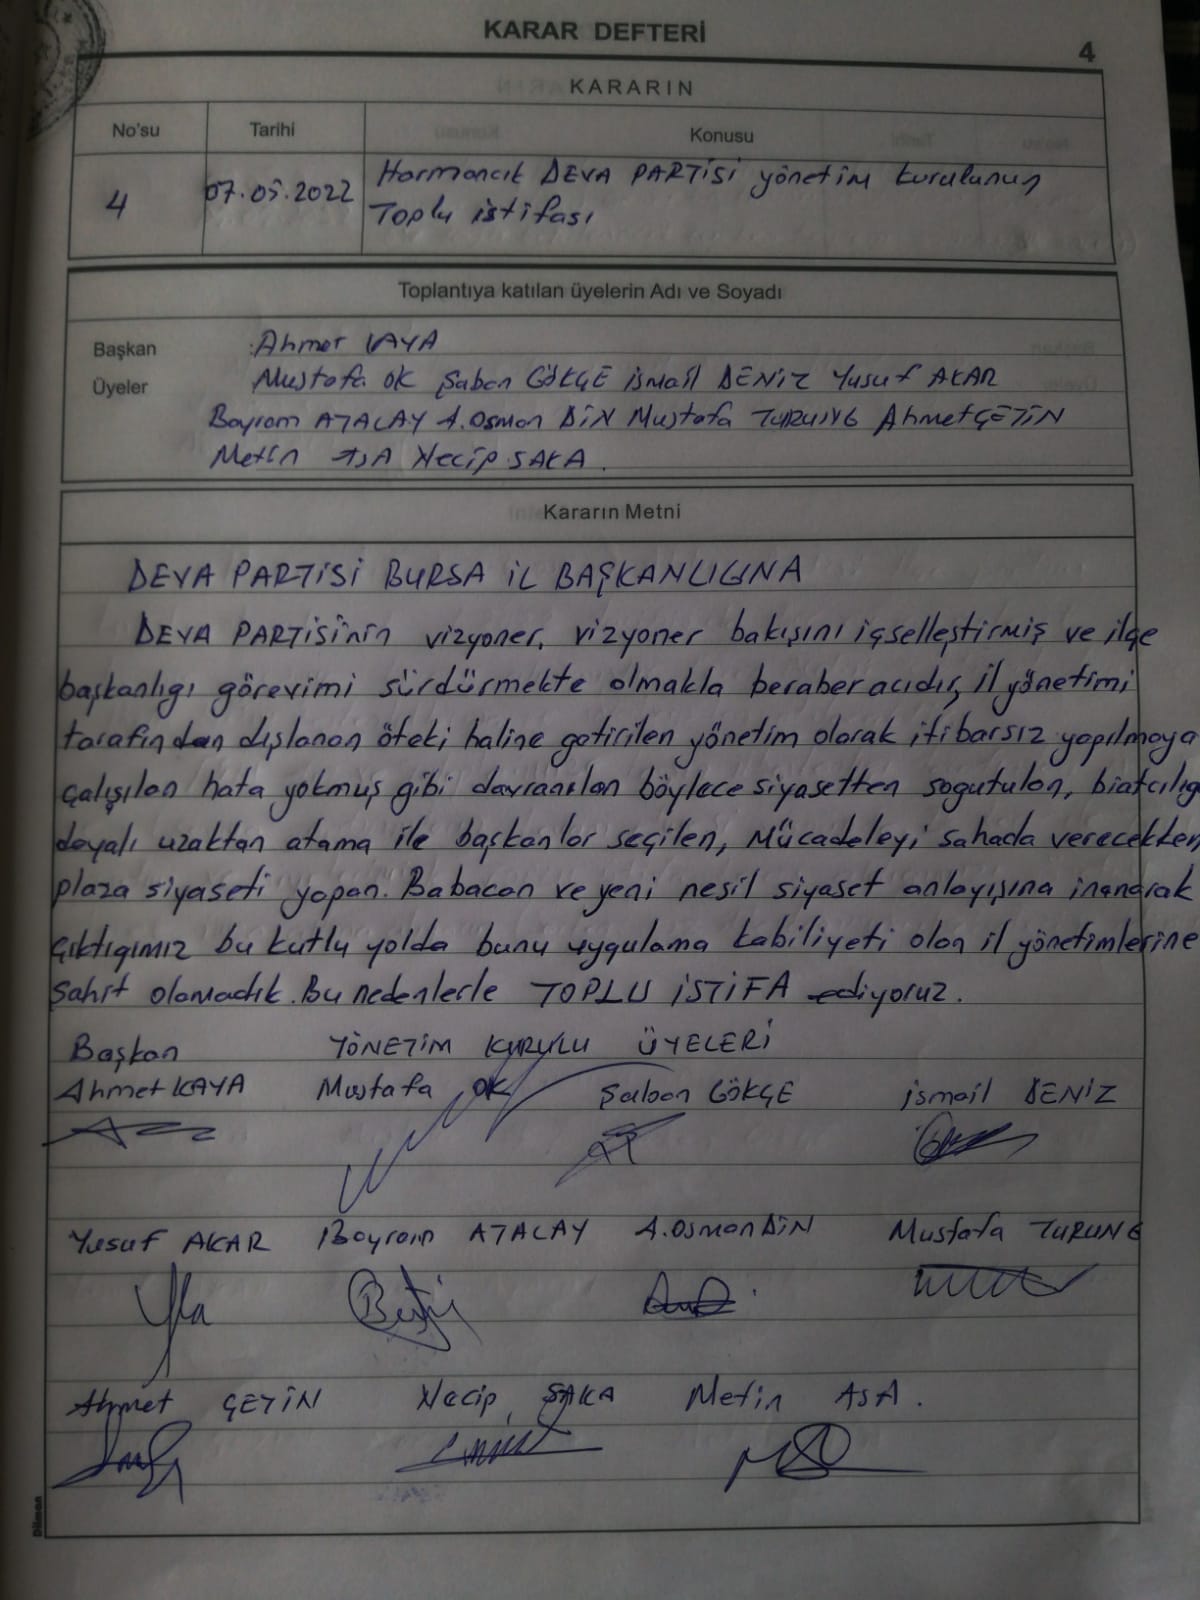 KARAR DEFTERİ
4
KARARIN
No'su Tarihi Konusu
4 07.05.2022 Harmancık DEVA PARTİSİ yönetim kurulunun
Toplu istifası
Toplantıya katılan üyelerin Adı ve Soyadı
Başkan : Ahmet KAYA
Üyeler Mustafa OK Şaban GÖKÇE İsmail DENİZ Yusuf AKAR
Bayram ATALAY A.Osman DİN Mustafa TURUNÇ Ahmet ÇETİN
Metin ASA Necip SAKA.
Kararın Metni
DEVA PARTİSİ BURSA İL BAŞKANLIGINA
DEVA PARTİSİ'nin vizyoner, vizyoner bakışını içselleştirmiş ve ilçe
başkanlıgı görevimi sürdürmekte olmakla beraber acıdır, il yönetimi
tarafından dışlanan öteki haline getirilen yönetim olarak itibarsız yapılmaya
çalışılan hata yokmuş gibi davranılan böylece siyasetten sogutulan, biatcılıg
dayalı uzaktan atama ile başkanlar seçilen, Mücadeleyi sahada verecekken
plaza siyaseti yapan. Babacan ve yeni nesil siyaset anlayışına inanarak
çıktıgımız bu kutlu yolda bunu uygulama kabiliyeti olan il yönetimlerine
Sahit olamadık. Bu nedenlerle TOPLU İSTİFA ediyoruz.
Başkan YÖNETİM KURULU ÜYELERİ
Ahmet KAYA Mustafa OK Şaban GÖKÇE İsmail DENİZ
Yusuf AKAR Bayram ATALAY A.Osman DİN Mustafa TURUNÇ
Ahmet ÇETİN Necip SAKA Metin ASA.
Dilman